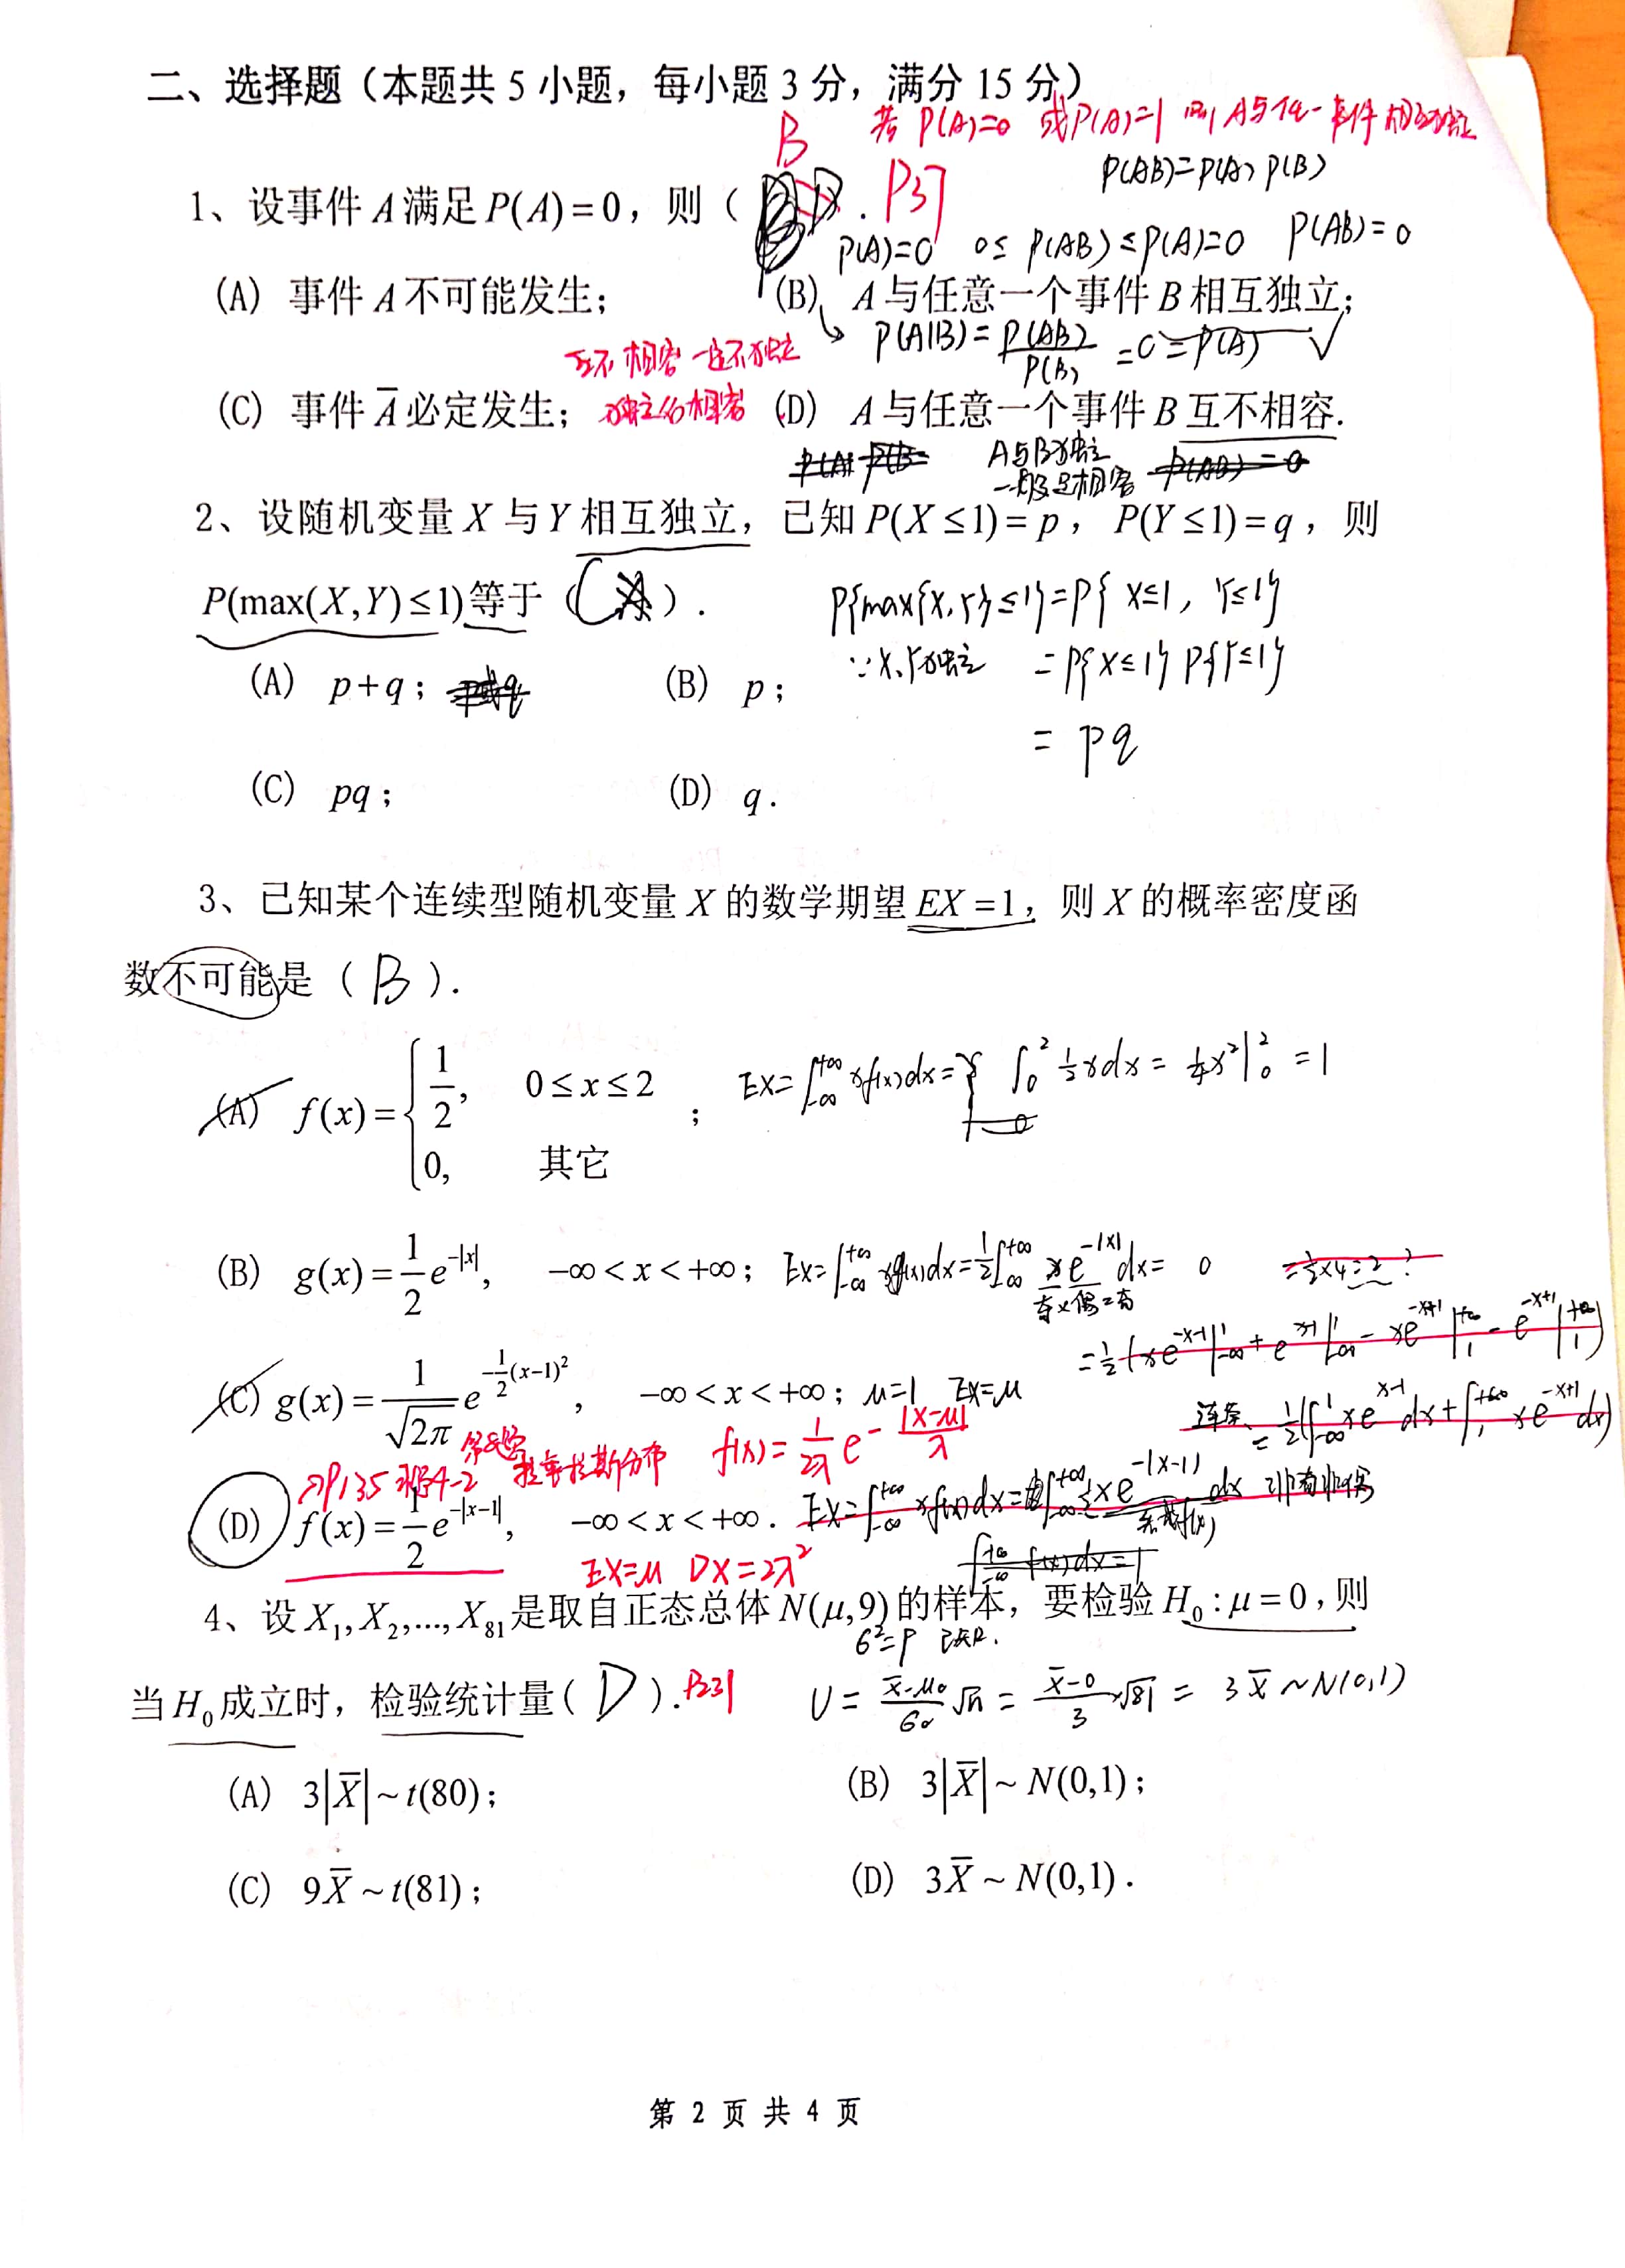 二、选择题（本题共 5 小题，每小题 3 分，满分 15 分）
B 若 P(A)=0 或 P(A)=1 则 A与任一事件相互独立
P(AB)=P(A) P(B)
1、设事件 A 满足 P(A)=0，则（ D . P37
P(A)=0 0≤ P(AB) ≤P(A)=0 P(AB)=0
(A) 事件 A 不可能发生； (B) A 与任意一个事件 B 相互独立；
互不相容一定不独立 P(A|B)=P(AB)/P(B) =0=P(A) √
(C) 事件 A̅ 必定发生； 独立必相容 (D) A 与任意一个事件 B 互不相容.
A与B独立
一般是相容 P(AB)=0
2、设随机变量 X 与 Y 相互独立，已知 P(X≤1)=p，P(Y≤1)=q，则
P(max(X,Y)≤1)等于（ C ）.
P{max{X,Y}≤1}=P{ X≤1, Y≤1}
∵X、Y独立 =P{X≤1} P{Y≤1}
= pq
(A) p+q； (B) p；
(C) pq； (D) q.
3、已知某个连续型随机变量 X 的数学期望 EX=1，则 X 的概率密度函
数不可能是（ B ）.
(A) f(x)={1/2, 0≤x≤2 ; 0, 其它
EX=∫_{-∞}^{+∞} xf(x)dx= ∫_0^2 1/2 xdx = 1/4 x²|_0^2 =1
(B) g(x)=1/2 e^{-|x|}, -∞<x<+∞； EX=∫_{-∞}^{+∞} xg(x)dx=1/2∫_{-∞}^{+∞} xe^{-|x|}dx= 0 =1/2×4=2？
奇×偶=奇
=1/2(xe^{x-1}|_{-∞}^1 + e^{x-1}|_{-∞}^1 - xe^{-x+1}|_1^{+∞} - e^{-x+1}|_1^{+∞})
(C) g(x)=1/√(2π) e^{-1/2(x-1)²}, -∞<x<+∞； μ=1 EX=μ
= 1/2(∫_{-∞}^1 xe^{x-1}dx+∫_1^{+∞} xe^{-x+1}dx)
P135 习题4-2 拉普拉斯分布 f(x)=1/2λ e^{-|x-μ|/λ}
(D) f(x)=1/2 e^{-|x-1|}, -∞<x<+∞. EX=∫_{-∞}^{+∞} xf(x)dx=∫_{-∞}^{+∞} 1/2 xe^{-|x-1|} dx 非奇非偶
∫_{-∞}^{+∞} f(x)dx=1
EX=μ DX=2λ²
4、设 X₁,X₂,...,X₈₁ 是取自正态总体 N(μ,9) 的样本，要检验 H₀:μ=0，则
σ²=9 已知.
当 H₀ 成立时，检验统计量（ D ）. P231
U = (x̄-μ₀)/σ₀ √n = (x̄-0)/3 ×√81 = 3x̄ ~N(0,1)
(A) 3|X̅| ~ t(80)； (B) 3|X̅| ~ N(0,1)；
(C) 9X̅ ~ t(81)； (D) 3X̅ ~ N(0,1).
第 2 页 共 4 页